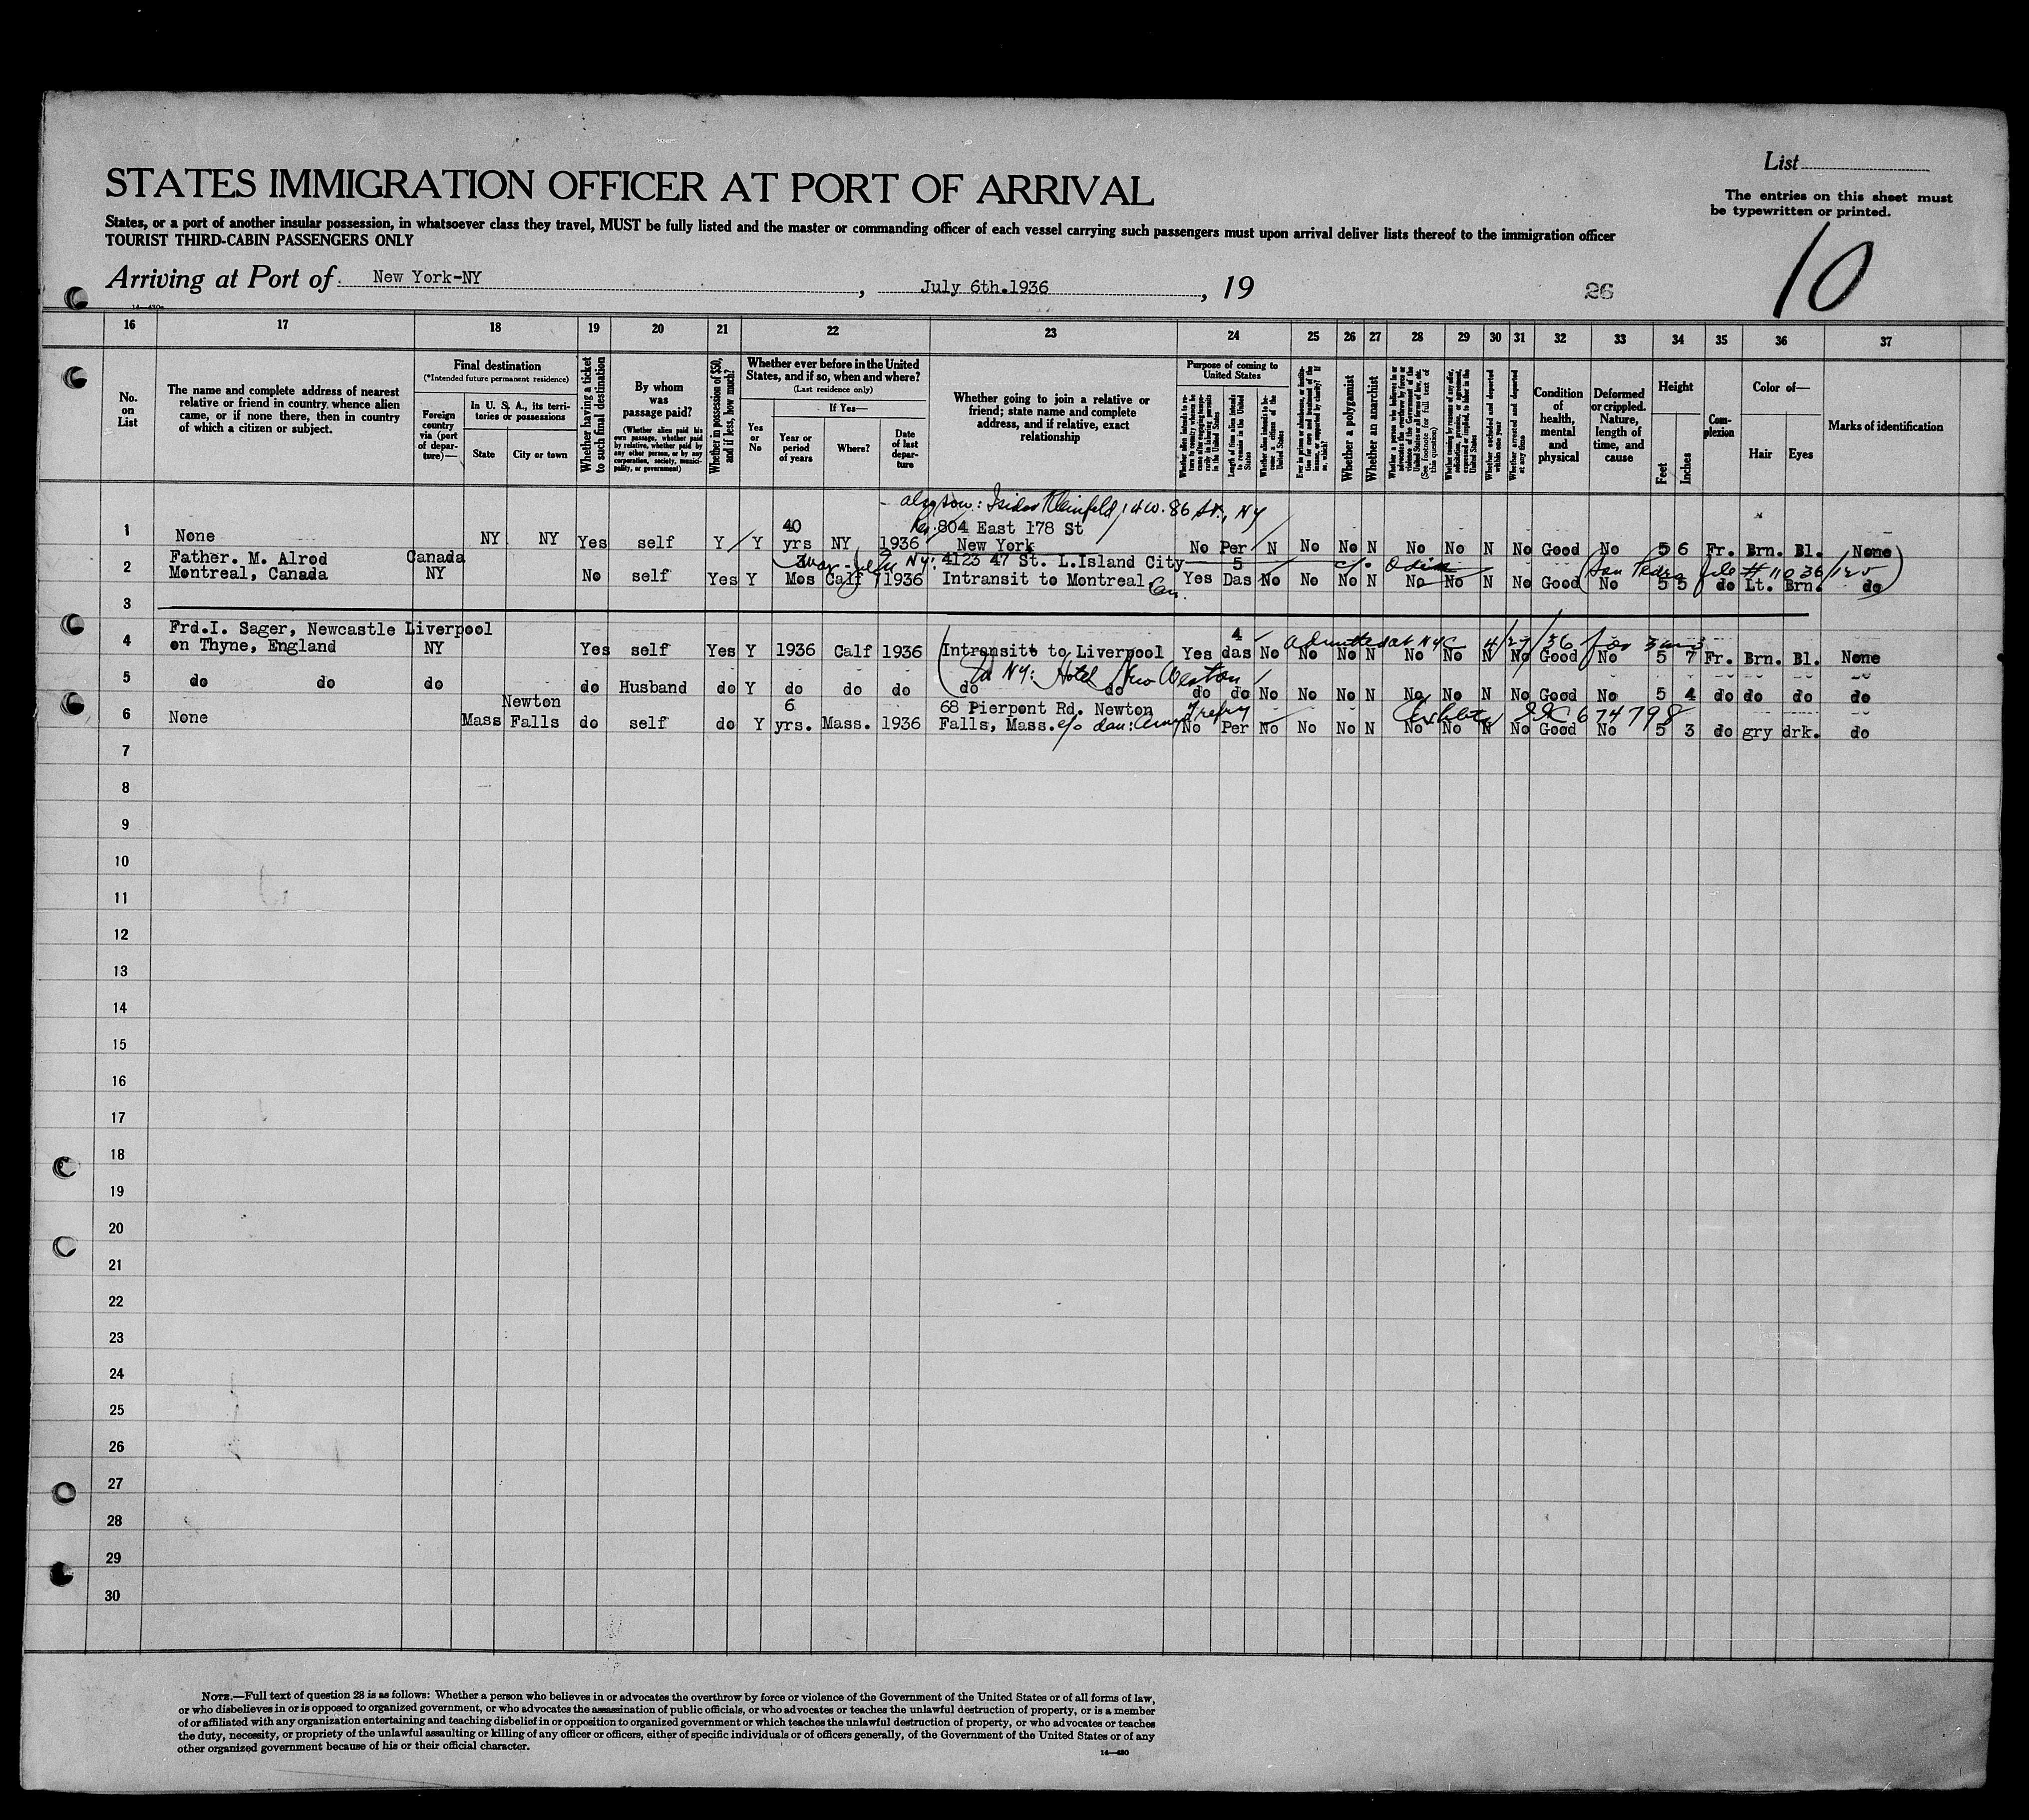 List
STATES IMMIGRATION OFFICER AT PORT OF ARRIVAL
The entries on this sheet must
be typewritten or printed.
States, or a port of another insular possession, in whatsoever class they travel, MUST be fully listed and the master or commanding officer of each vessel carrying such passengers must upon arrival deliver lists thereof to the immigration officer
TOURIST THIRD-CABIN PASSENGERS ONLY
10
Arriving at Port of New York-NY, July 6th.1936, 19
26
16 17 18 19 20 21 22 23 24 25 26 27 28 29 30 31 32 33 34 35 36 37
No. on List
The name and complete address of nearest relative or friend in country whence alien came, or if none there, then in country of which a citizen or subject.
Final destination
(*Intended future permanent residence)
Foreign country via (port of departure)—
In U. S. A., its territories or possessions
State
City or town
Whether having a ticket to such final destination
By whom was passage paid?
(Whether alien paid his own passage, whether paid by relative, whether paid by any other person, or by any corporation, society, municipality, or government)
Whether in possession of $50, and if less, how much?
Whether ever before in the United States, and if so, when and where?
(Last residence only)
Yes or No
If Yes—
Year or period of years
Where?
Date of last departure
Whether going to join a relative or friend; state name and complete address, and if relative, exact relationship
Purpose of coming to United States
Length of time alien intends to remain in the United States
Whether alien intends to become a citizen of the United States
Whether a polygamist
Whether an anarchist
(See footnote for full text of this question)
Whether excluded and deported within one year
Whether arrested and deported at any time
Condition of health, mental and physical
Deformed or crippled. Nature, length of time, and cause
Height
Feet
Inches
Complexion
Color of—
Hair
Eyes
Marks of identification
also son: Isidor Kleinfeld, 14 W. 86 St., NY
1 None NY NY Yes self Y Y 40 yrs NY 1936 804 East 178 St New York No Per N No No N No No N No Good No 5 6 Fr. Brn. Bl. None
2 Father. M. Alrod Montreal, Canada Canada NY No self Yes Y Mos Calf 1936 NY: 4123 47 St. L.Island City Intransit to Montreal Can. Yes 5 Das No No No N No No N No Good No 5 5 do Lt. Brn. do
San Pedro file # 11036/125
3
4 Frd.I. Sager, Newcastle on Thyne, England Liverpool NY Yes self Yes Y 1936 Calf 1936 Intransit to Liverpool Yes 4 das No No No N No No N No Good No 5 7 Fr. Brn. Bl. None
admitted at NYC 4/27/36 for 3 ms
In NY: Hotel New Weston
5 do do do do Husband do Y do do do do do do do No No No N No No N No Good No 5 4 do do do do
6 None Mass Newton Falls do self do Y 6 yrs. Mass. 1936 68 Pierpont Rd. Newton Falls, Mass. c/o dau: No Per No No No N No No N No Good No 5 3 do gry drk. do
674798
7
8
9
10
11
12
13
14
15
16
17
18
19
20
21
22
23
24
25
26
27
28
29
30
NOTE.—Full text of question 28 is as follows: Whether a person who believes in or advocates the overthrow by force or violence of the Government of the United States or of all forms of law,
or who disbelieves in or is opposed to organized government, or who advocates the assassination of public officials, or who advocates or teaches the unlawful destruction of property, or is a member
of or affiliated with any organization entertaining and teaching disbelief in or opposition to organized government or which teaches the unlawful destruction of property, or who advocates or teaches
the duty, necessity, or propriety of the unlawful assaulting or killing of any officer or officers, either of specific individuals or of officers generally, of the Government of the United States or of any
other organized government because of his or their official character.
14—430